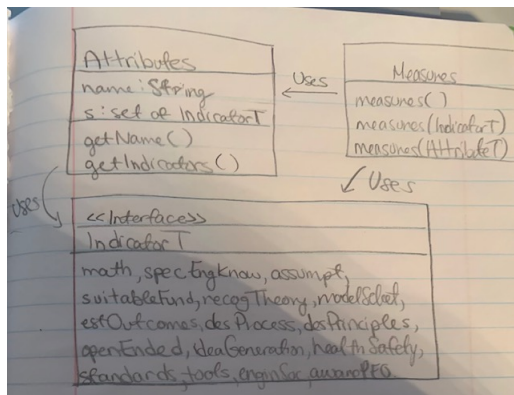 Attributes
name: String
s: set of IndicatorT
getName()
getIndicators()
Uses
Measures
measures()
measures(IndicatorT)
measures(AttributeT)
Uses
Uses
<<Interface>>
IndicatorT
math, specEngKnow, assumpt,
suitableFund, recogTheory, modelSelect,
estOutcomes, desProcess, desPrinciples,
openEnded, ideaGeneration, healthSafety,
standards, tools, enginSoc, awarePEO